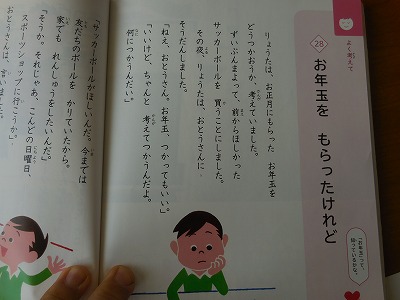 よく考えて
28
お年玉を もらったけれど
「お年玉」って、
知っているかな。
りょうたは、お正月にもらった お年玉を
どうつかおうか、考えていました。
ずいぶんまよって、前からほしかった
サッカーボールを 買うことにしました。
その夜、りょうたは、おとうさんに
そうだんしました。
「ねえ、おとうさん。お年玉、つかってもいい。」
「いいけど、ちゃんと 考えてつかうんだよ。
何につかうんだい。」
「サッカーボールがほしいんだ。今までは
友だちのボールを かりていたから。
家でも れんしゅうをしたいんだ。」
「そうか。それじゃあ、こんどの日曜日、
スポーツショップに行こうか。」
おとうさんは、言いました。